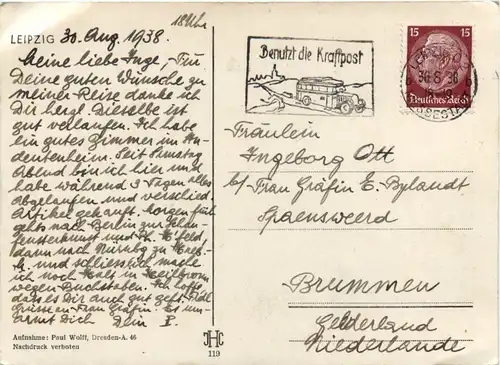 18 Uhr
LEIPZIG 30. Aug. 1938.
Meine liebe Inge, Für
Deine guten Wünsche zu
meiner Reise danke ich
Dir herzl. Dieselbe ist
gut verlaufen. Ich habe
ein gutes Zimmer im
dentenheim. Seit Samstag
Abend bin ich hier und
habe während 3 Tagen alles
abgelaufen und verschied.
Artikel gekauft. Morgen früh
gehts nach Berlin zur
und
dann nach Nürnbg zu
und schliesslich mache
ich noch Halt in Heilbronn
wegen Buchstaben. Ich hoffe,
dass es Dir auch gut geht.
Grüsse an Frau Gräfin. Es um-
armt Dich Dein
Aufnahme: Paul Wolff, Dresden-A. 46
Nachdruck verboten
JHC
119
Benutzt die Kraftpost
LEIPZIG
15 15
Deutsches Reich
Fräulein
Ingeborg Ott
b/ Frau Gräfin E. Bylandt
Spaensweerd
Brummen
Gelderland
Niederlande